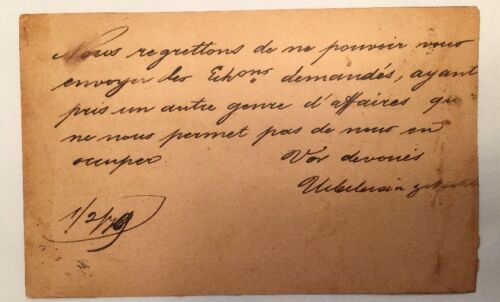 Nous regrettons de ne pouvoir vous
envoyer les Echons demandés, ayant
pris un autre genre d'affaires qui
ne nous permet pas de nous en
occuper Vos devoués
1/2/79